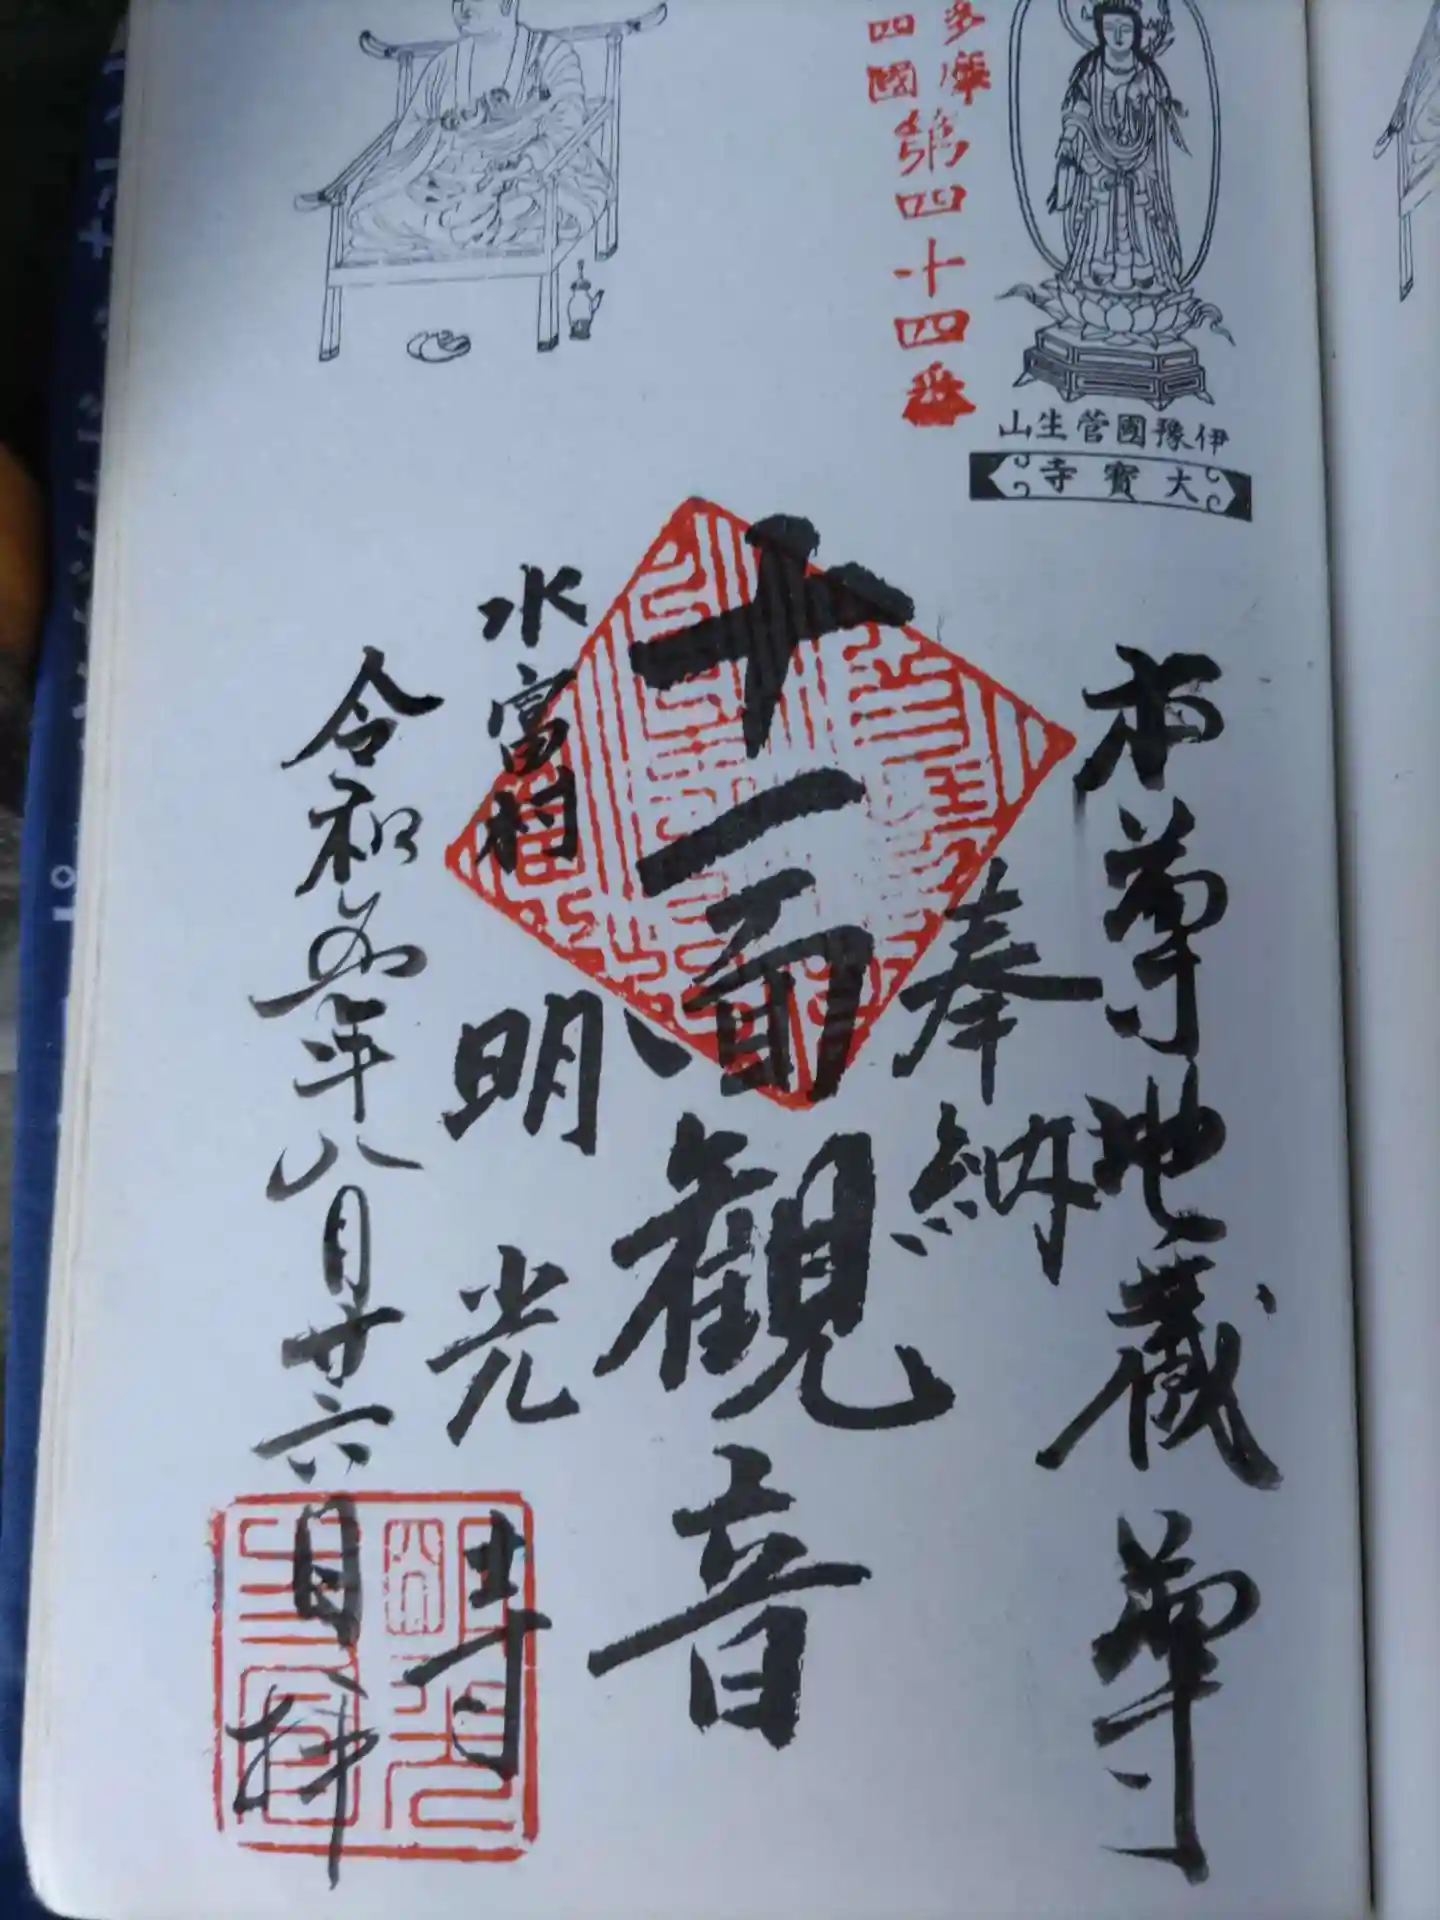 多摩
四國
第四十四番
伊豫國菅生山
大寶寺
本尊地蔵尊
奉納
十一面観音
水富村
明光寺
令和五年八月廿六日
拝